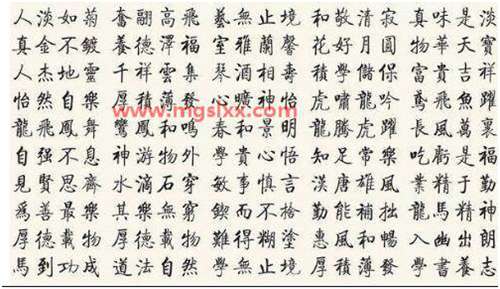 人淡如菊奮翮高飛藝無止境和敬清寂真味是淡
真金不鍍養德澤福室雅蘭馨花好月圓物華天寶
人杰地靈千祥雲集琴酒相壽學儲保富貴吉祥
怡然自樂厚積薄發心曠神怡虎嘯龍吟鳶飛魚躍
龍飛鳳舞鸞鳳和鳴春和景明龍騰虎躍長風萬裏
自强不息神游物外學貴心悟知足常樂吃虧是福
見賢思齊水滴石穿敏事慎言漢唐雄風業精于勤
爲善最樂其樂無窮鍥而不捨勤能補拙龍馬精神
厚德載物厚德載物難得糊塗惠風和暢入幽出朗
馬到功成道法自然學無止境厚積薄發學書養志
www.mgslxx.com